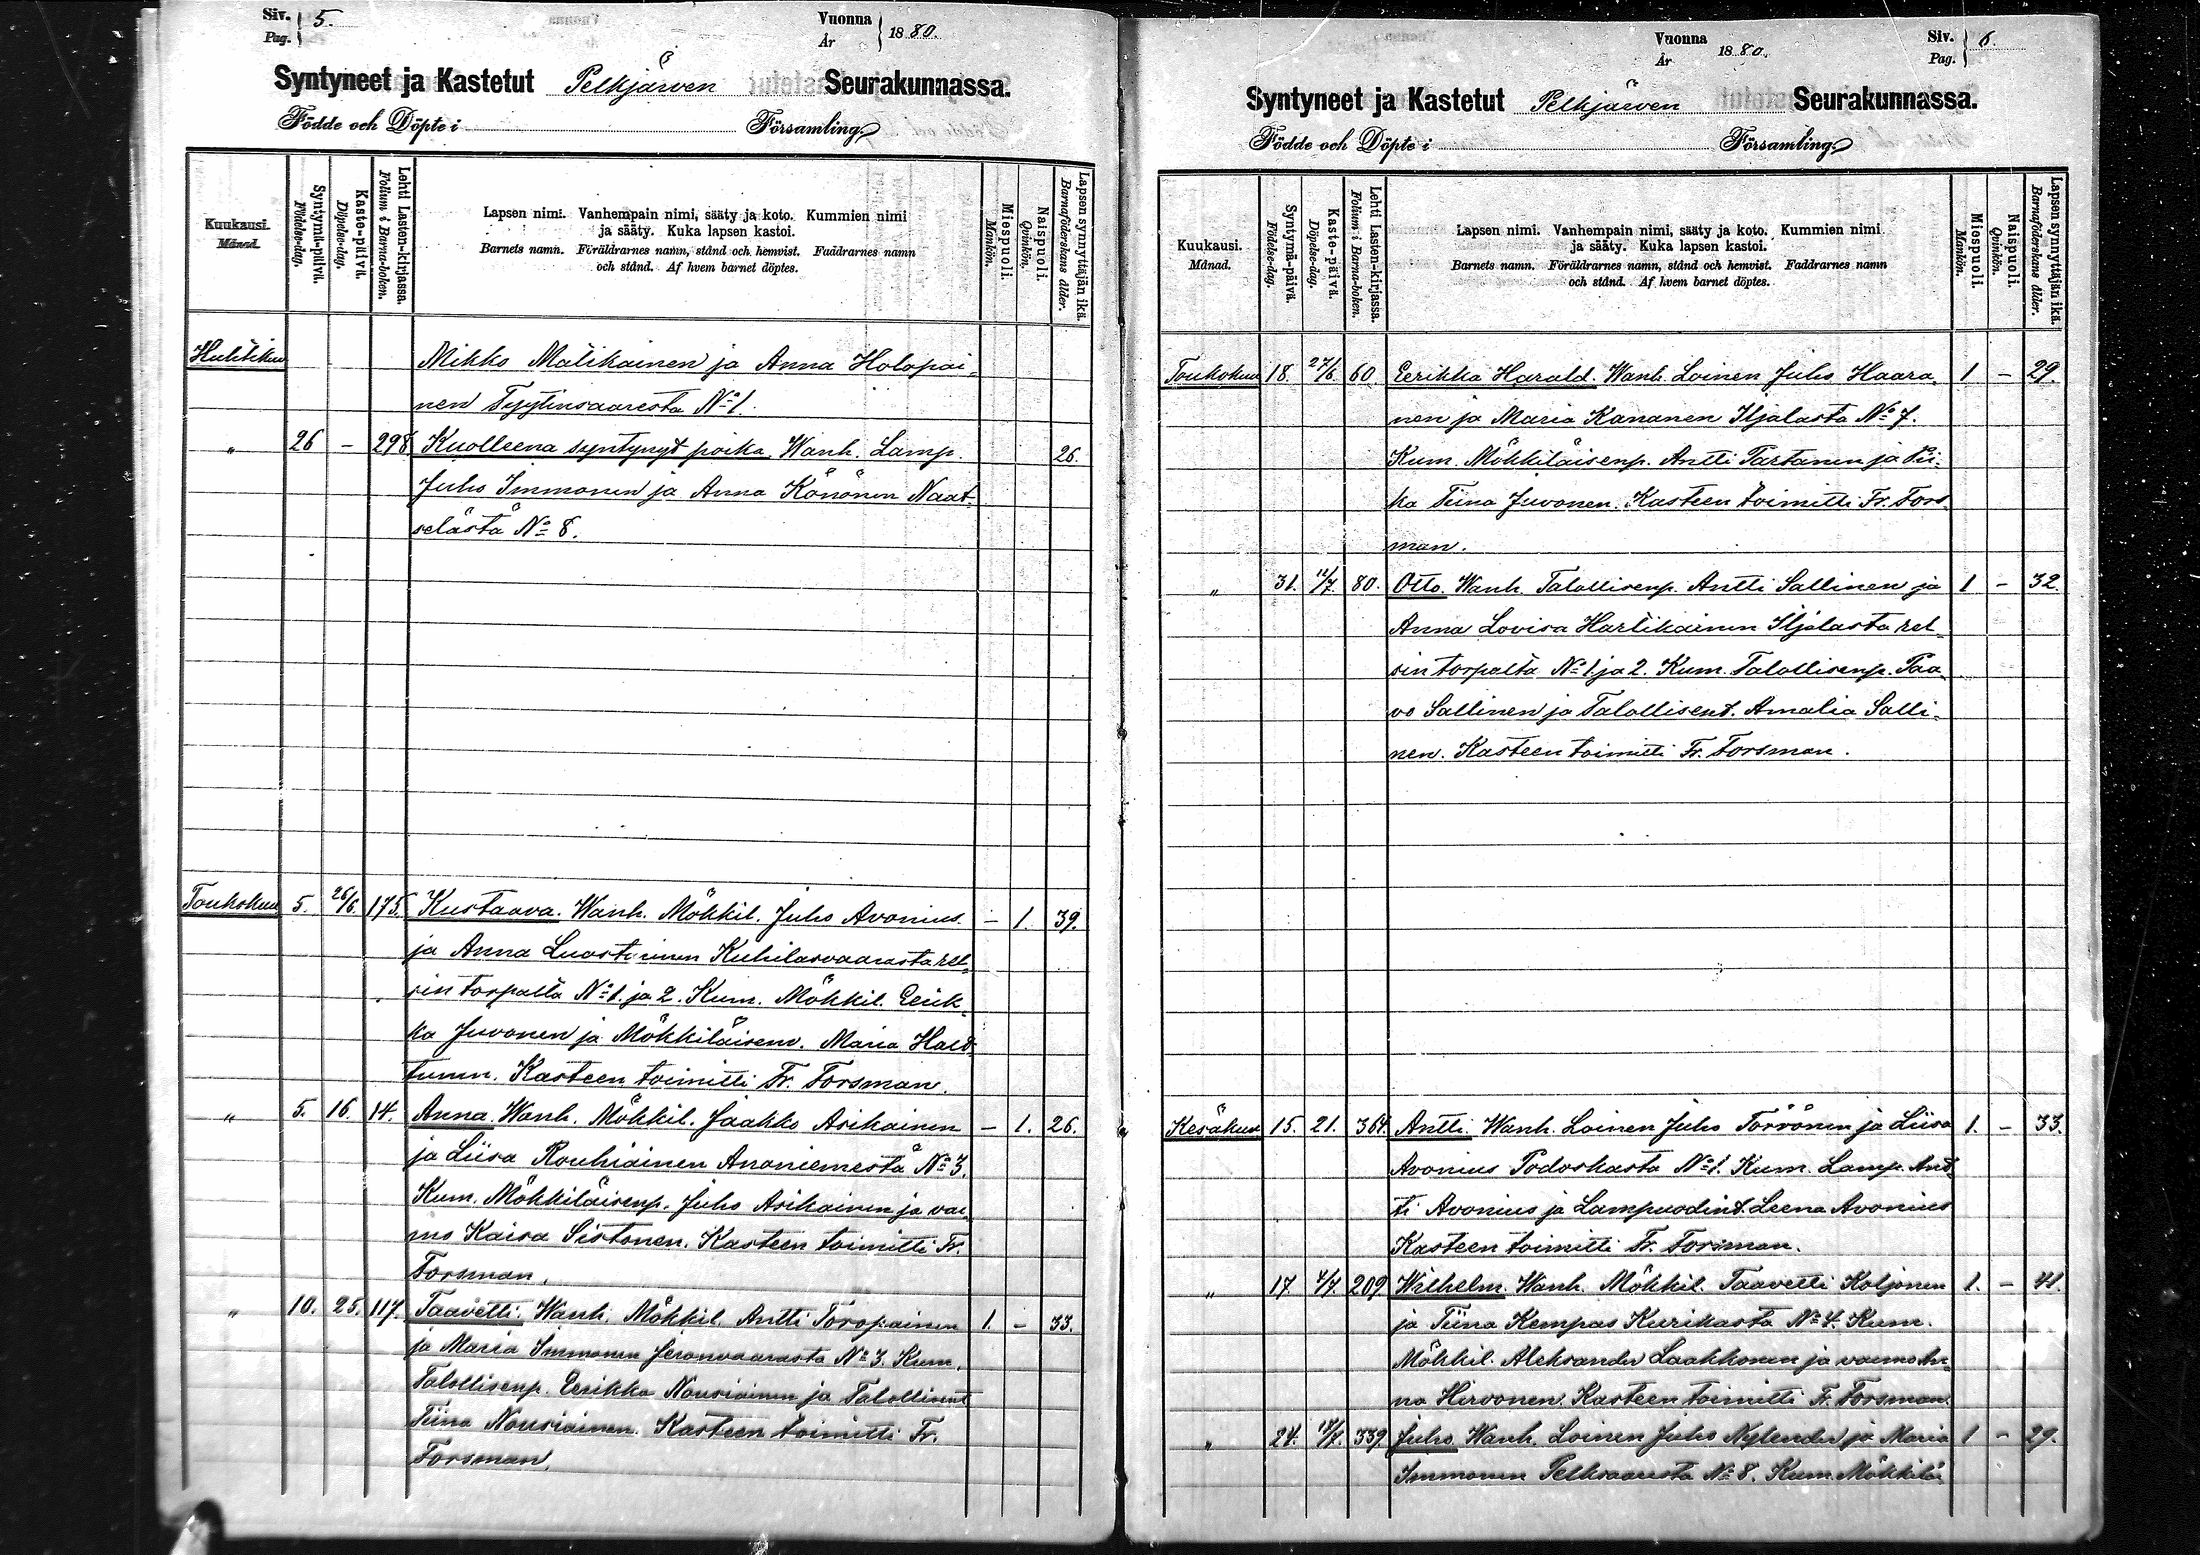 Siv. 5.
Pag.
Vuonna
År 1880.
Syntyneet ja Kastetut Pelkjärven Seurakunnassa.
Födde och Döpte i Församling.
Kuukausi.
Månad.
Syntymä-päivä.
Födelse-dag.
Kaste-päivä.
Döpelse-dag.
Lehti Lasten-kirjassa.
Folium i Barna-boken.
Lapsen nimi. Vanhempain nimi, sääty ja koto. Kummien nimi
ja sääty. Kuka lapsen kastoi.
Barnets namn. Föräldrarnes namn, stånd och hemvist. Faddrarnes namn
och stånd. Af hvem barnet döptes.
Miespuoli.
Mankön.
Naispuoli.
Qvinkön.
Lapsen synnyttäjän ikä.
Barnaföderskans ålder.
Huhtikuu Mikko Matikainen ja Anna Holopai-
nen Tyytinsaaresta No 1.
" 26 – 298 Kuolleena syntynyt poika. Wanh. Lamp. 26.
Juho Immonen ja Anna Könönen Naat-
selästä No 8.
Toukokuu 5. 26/6. 175. Kustaava. Wanh. Mökkil. Juho Avonius – 1. 39.
ja Anna Luostarinen Kuhilasvaarasta rel-
sin torpalta No 1. ja 2. Kum. Mökkil. Eerik-
ka Juvonen ja Mökkiläisenv. Maria Hald-
tunen. Kasteen toimitti Fr. Forsman.
" 5. 16. 14. Anna. Wanh. Mökkil. Jaakko Asikainen – 1. 26.
ja Liisa Rouhiainen Ananiemestä No 3.
Kum. Mökkiläisenp. Juho Asikainen ja vai-
mo Kaisa Sistonen. Kasteen toimitti Fr.
Forsman.
" 10. 25. 117. Taavetti. Wanh. Mökkil. Antti Toropainen 1. – 33.
ja Maria Immonen Jeronvaarasta No 3. Kum.
Talollisenp. Eerikka Nousiainen ja Talollisent.
Tiina Nousiainen. Kasteen toimitti Fr.
Forsman.
Vuonna
År 1880.
Siv. 6.
Pag.
Syntyneet ja Kastetut Pelkjärven Seurakunnassa.
Födde och Döpte i Församling.
Kuukausi.
Månad.
Syntymä-päivä.
Födelse-dag.
Kaste-päivä.
Döpelse-dag.
Lehti Lasten-kirjassa.
Folium i Barna-boken.
Lapsen nimi. Vanhempain nimi, sääty ja koto. Kummien nimi
ja sääty. Kuka lapsen kastoi.
Barnets namn. Föräldrarnes namn, stånd och hemvist. Faddrarnes namn
och stånd. Af hvem barnet döptes.
Miespuoli.
Mankön.
Naispuoli.
Qvinkön.
Lapsen synnyttäjän ikä.
Barnaföderskans ålder.
Toukokuu 18. 27/6. 60. Eerikka Harald. Wanh. Loinen Juho Haara- 1 – 29.
nen ja Maria Kananen Iljalasta No 7.
Kum. Mökkiläisenp. Antti Tartanen ja Pii-
ka Tiina Juvonen. Kasteen toimitti Fr. Fors-
man.
" 31. 11/7. 80. Otto. Wanh. Talollisenp. Antti Sallinen ja 1 – 32.
Anna Lovisa Hartikainen Iljalasta rel-
sin torpalta No 1. ja 2. Kum. Talollisenp. Paa-
vo Sallinen ja Talollisent. Amalia Salli-
nen. Kasteen toimitti Fr. Forsman.
Kesäkuu 15. 21. 364. Antti. Wanh. Loinen Juho Törvönen ja Liisa 1. – 33.
Avonius Podoskasta No 1. Kum. Lamp. And-
ti Avonius ja Lampuodint. Leena Avonius
Kasteen toimitti Fr. Forsman.
" 17. 4/7. 209 Wilhelm. Wanh. Mökkil. Taavetti Koljonen 1. – 41.
ja Tiina Kempas Kurikasta No 4. Kum.
Mökkil. Aleksander Laakkonen ja vaimo An-
na Hirvonen. Kasteen toimitti Fr. Forsman.
" 24. 18/7. 339 Juho. Wanh. Loinen Juho Nylender ja Maria 1 – 29.
Immonen Pelksaaresta No 8. Kum. Mökkilä-